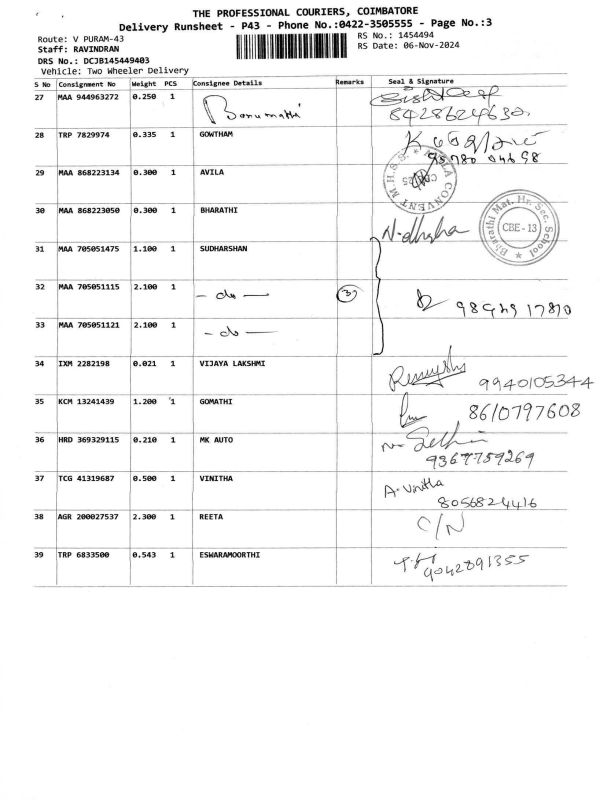 THE PROFESSIONAL COURIERS, COIMBATORE
Delivery Runsheet - P43 - Phone No.:0422-3505555 - Page No.:3
Route: V PURAM-43
RS No.: 1454494
Staff: RAVINDRAN
RS Date: 06-Nov-2024
DRS No.: DCJB145449403
Vehicle: Two Wheeler Delivery
S No Consignment No Weight PCS Consignee Details Remarks Seal & Signature
27 MAA 944963272 0.250 1 Banumathi
8428624630
28 TRP 7829974 0.335 1 GOWTHAM
95780 04698
29 MAA 868223134 0.300 1 AVILA
CONVENT M.H.S.S.
30 MAA 868223050 0.300 1 BHARATHI N-dhasha
Bharathi Mat. Hr. Sec. School
CBE - 13
31 MAA 705051475 1.100 1 SUDHARSHAN
32 MAA 705051115 2.100 1 - do - 3
33 MAA 705051121 2.100 1 - do -
34 IXM 2282198 0.021 1 VIJAYA LAKSHMI
9940105344
35 KCM 13241439 1.200 1 GOMATHI
8610797608
36 HRD 369329115 0.210 1 MK AUTO
9367759269
37 TCG 41319687 0.500 1 VINITHA A. Vinitha
8056824416
38 AGR 200027537 2.300 1 REETA C/N
39 TRP 6833500 0.543 1 ESWARAMOORTHI
9042891355